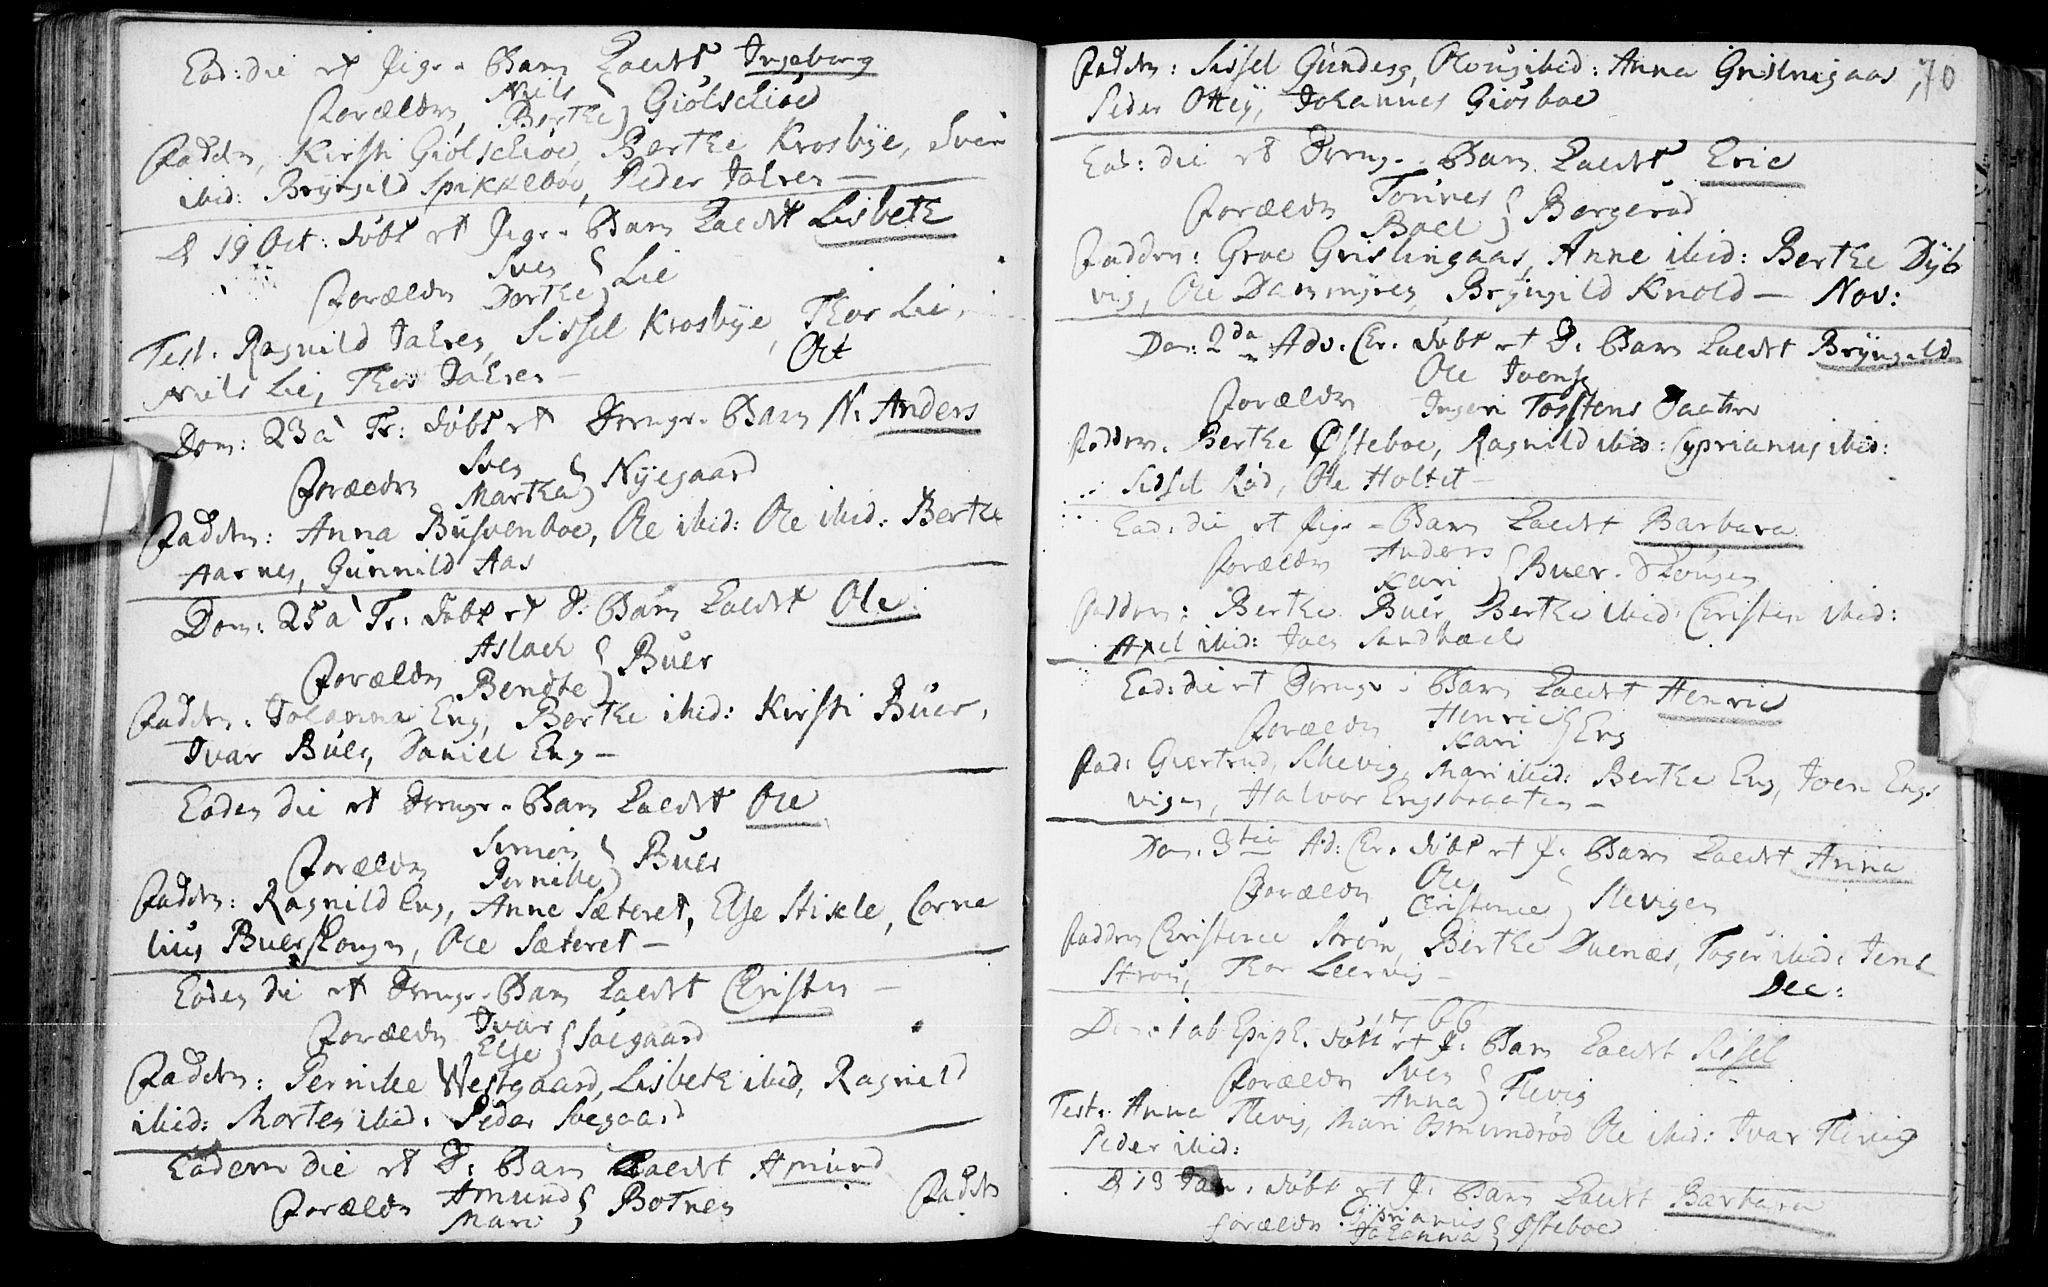 Ead: die et Pige-Barn kaldt Ingeborg
Forældre Niels Berthe Giølschiøe
Faddr, Kirsti Giølschiøe, Berthe Krosbÿe, Sven
ibid: Brÿngild Spikkeboe, Peder Jahren —
D 19 Oct: døbt et Pige-Barn kaldt Lisbeth
Forældre Sven Dorthe Lie
Test. Ragnild Jahren, Sissel Krosbÿe, Thor Lie,
Niels Lie, Thor Jahren — Oct
Dom: 23 a Tr: døbt et Drenge-Barn N. Anders
Forældre Sven Martha Nÿegaard
Faddre: Anna Busvenboe, Ole ibid: Ole ibid: Berthe
Aarnes, Gunnild Aas
Dom: 25 a Tr: døbt et D: Barn kaldt Ole
Forældre Aslach Bendte Buer
Faddre: Johanna Eng, Berthe ibid: Kirsti Buer,
Ivar Buer, Daniel Eng —
Eaden die et Drenge-Barn kaldt Ole
Forældre Simon Pernille Buer
Faddre: Ragnild Eng, Anne Sæteret, Else Stixle, Corne
lius Buerskougen, Ole Sæteret —
Eaden die et Drenge-Barn kaldt Christen —
Forældre Ivar Else Soegaard
Faddre: Pernille Westgaard, Lisbeth ibid, Ragnild
ibid: Morten ibid: Peder Soegaard
Eadem die et D: Barn kaldt Amund
Forældre Amund Mari Botnen Faddre
Faddre: Sissel Gunders, Olous ibid: Anna Grislingaas 70
Peder Otteÿ, Johannes Giøsboe
Ead: die et Drenge-Barn kaldt Eric
Forældre Tønnes Boel Bergerød
Faddre: Groe Grislingaas, Anne ibid: Berthe Dÿb
vig, Ole Dammÿren, Brÿngild Knold — Nov:
Dom: 2da Adv. Chr. døbt et D: Barn kaldt Brÿngild
Ole Ivense
Forældre Ingeri Tosstens Daatter
Faddere. Berthe Østeboe, Ragnild ibid: Cyprianus ibid:
Sidsel Rød, Ole Holtet —
Ead: die et Pige-Barn kaldt Barbara
Forældre Anders Kari Buer-Skougen
Faddere: Berthe Buer, Berthe ibid: Christen ibid:
Axel ibid: Joen Sandbæch
Ead: die et Drenge-Barn kaldt Henric
Forældre Henric Kari Eng
Fad: Giertrud Slevig, Mari ibid: Berthe Eng, Joen Engs
vigen, Halvor Engsbraaten —
Dom. 3tia Ad: Chr. døbt et P: Barn kaldt Anna
Forældre Ole Christence Slevigen
Faddere Christence Strøm, Berthe Duenæs, Toger ibid: Jens
Strøm, Thor Leervig — Dec:
1766
Dom. 1 ab Epiph. døbt et P: Barn kaldt Sissel
Forældre Sven Anna Flevig
Test. Anna Flevig, Mari Osmundrød Ole ibid: Ivar Flevig
Peder ibid:
D 13 Jan: døbt et P: Barn kaldt Barbara
Forældre Cÿprianus Johanna Østeboe